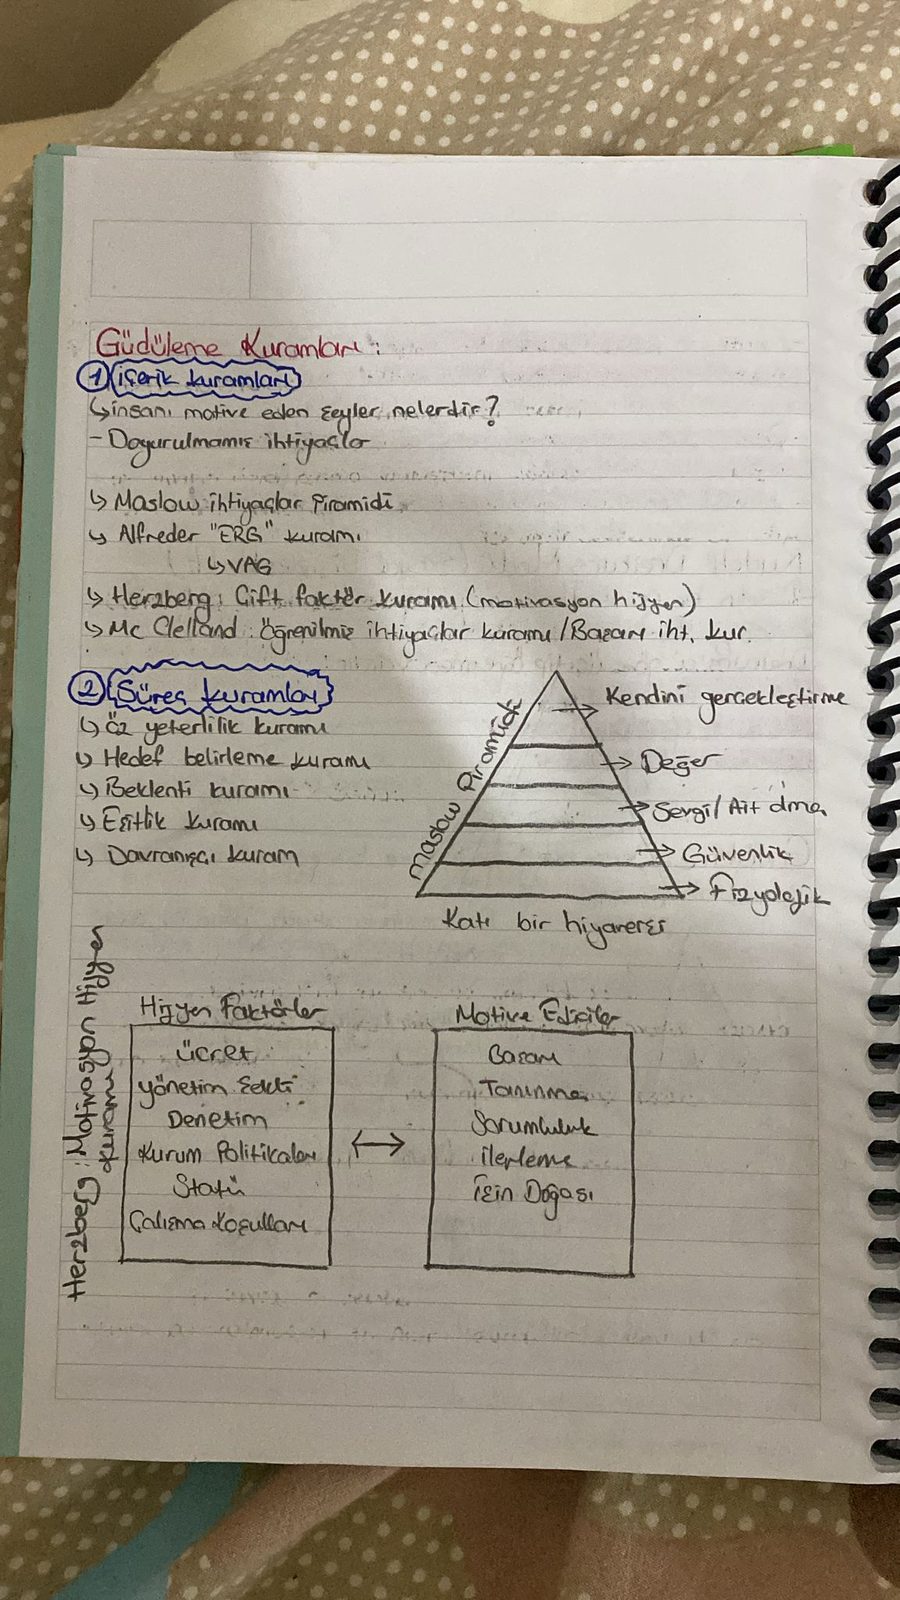 Güdüleme Kuramları :
1 İçerik kuramları
↳ insanı motive eden şeyler nelerdir?
- Doyurulmamış ihtiyaçlar
↳ Maslow ihtiyaçlar Piramidi
↳ Alfreder "ERG" kuramı
↳ VAG
↳ Herzberg: Çift faktör kuramı (motivasyon hijyen)
↳ Mc Clelland: Öğrenilmiş ihtiyaçlar kuramı / Başarı iht. kur.
2 Süreç kuramları
↳ Öz yeterlilik kuramı
↳ Hedef belirleme kuramı
↳ Beklenti kuramı
↳ Eşitlik Kuramı
↳ Davranışçı kuram
Maslow Piramidi
→ Kendini gerçekleştirme
→ Değer
→ Sevgi/Ait olma
→ Güvenlik
→ Fizyolojik
Katı bir hiyarerşi
Herzberg: Motivasyon Hijyen
Kuramı
Hijyen Faktörler
Ücret
Yönetim Şekli
Denetim
Kurum Politikaları
Statü
Çalışma Koşulları
↔
Motive Ediciler
Başarı
Tanınma
Sorumluluk
İlerleme
İşin Doğası